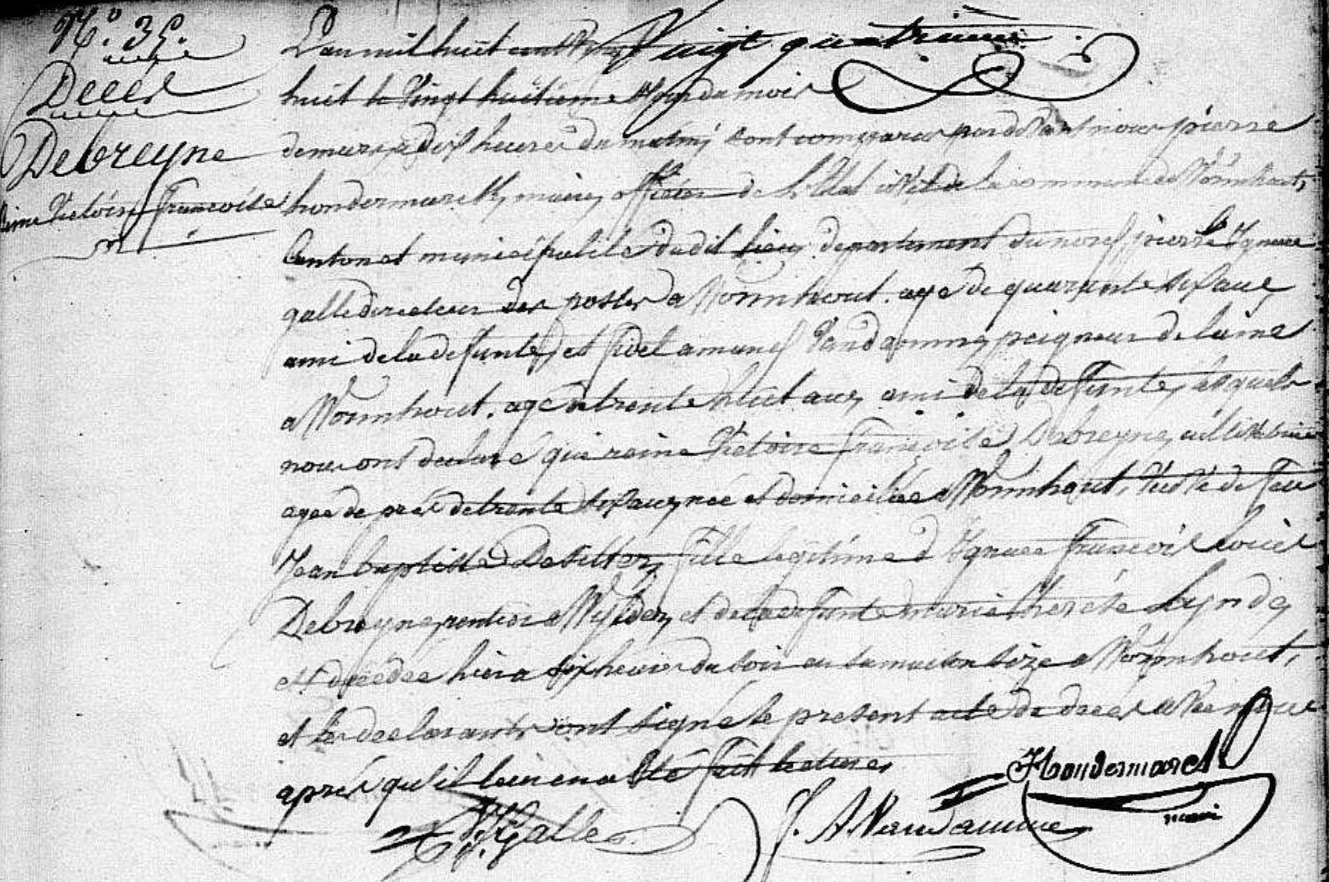 N.° 35.
Décès
Debreyne
Reine Victoire Françoise
L'an mil huit cent Vingt quatrieme
huit le vingt huitieme jour du mois
de mars a dix heures du matin sont comparus pardevant nous pierre
hondermarck, maire, officier de l'Etat civil de la commune de Wormhout,
Canton et municipalité dudit lieu, departement du nord, pierre Ignace
galle directeur des postes a Wormhout. agé de quarante six ans,
ami de la defunte, et fidel amand Vandamme, peigneur de laine
a Wormhout. agé de trente huit ans, ami de la defunte, lesquels
nous ont declaré que reine Victoire françoise Debreyne,
agée de près de trente six ans, née et domiciliée a Wormhout, de feu
Jean baptiste fille legitime d'Ignace françois louis
Debreyne, rentier a Wylder, et de la defunte marie therese
est decedée hier a six heures du soir en sa maison size a Wormhout,
et les declarants ont signé le present acte de decès avec nous
après qu'il leur en a été fait lecture,
Hondermarck
maire
P. J. Galle
F. A. Vandamme